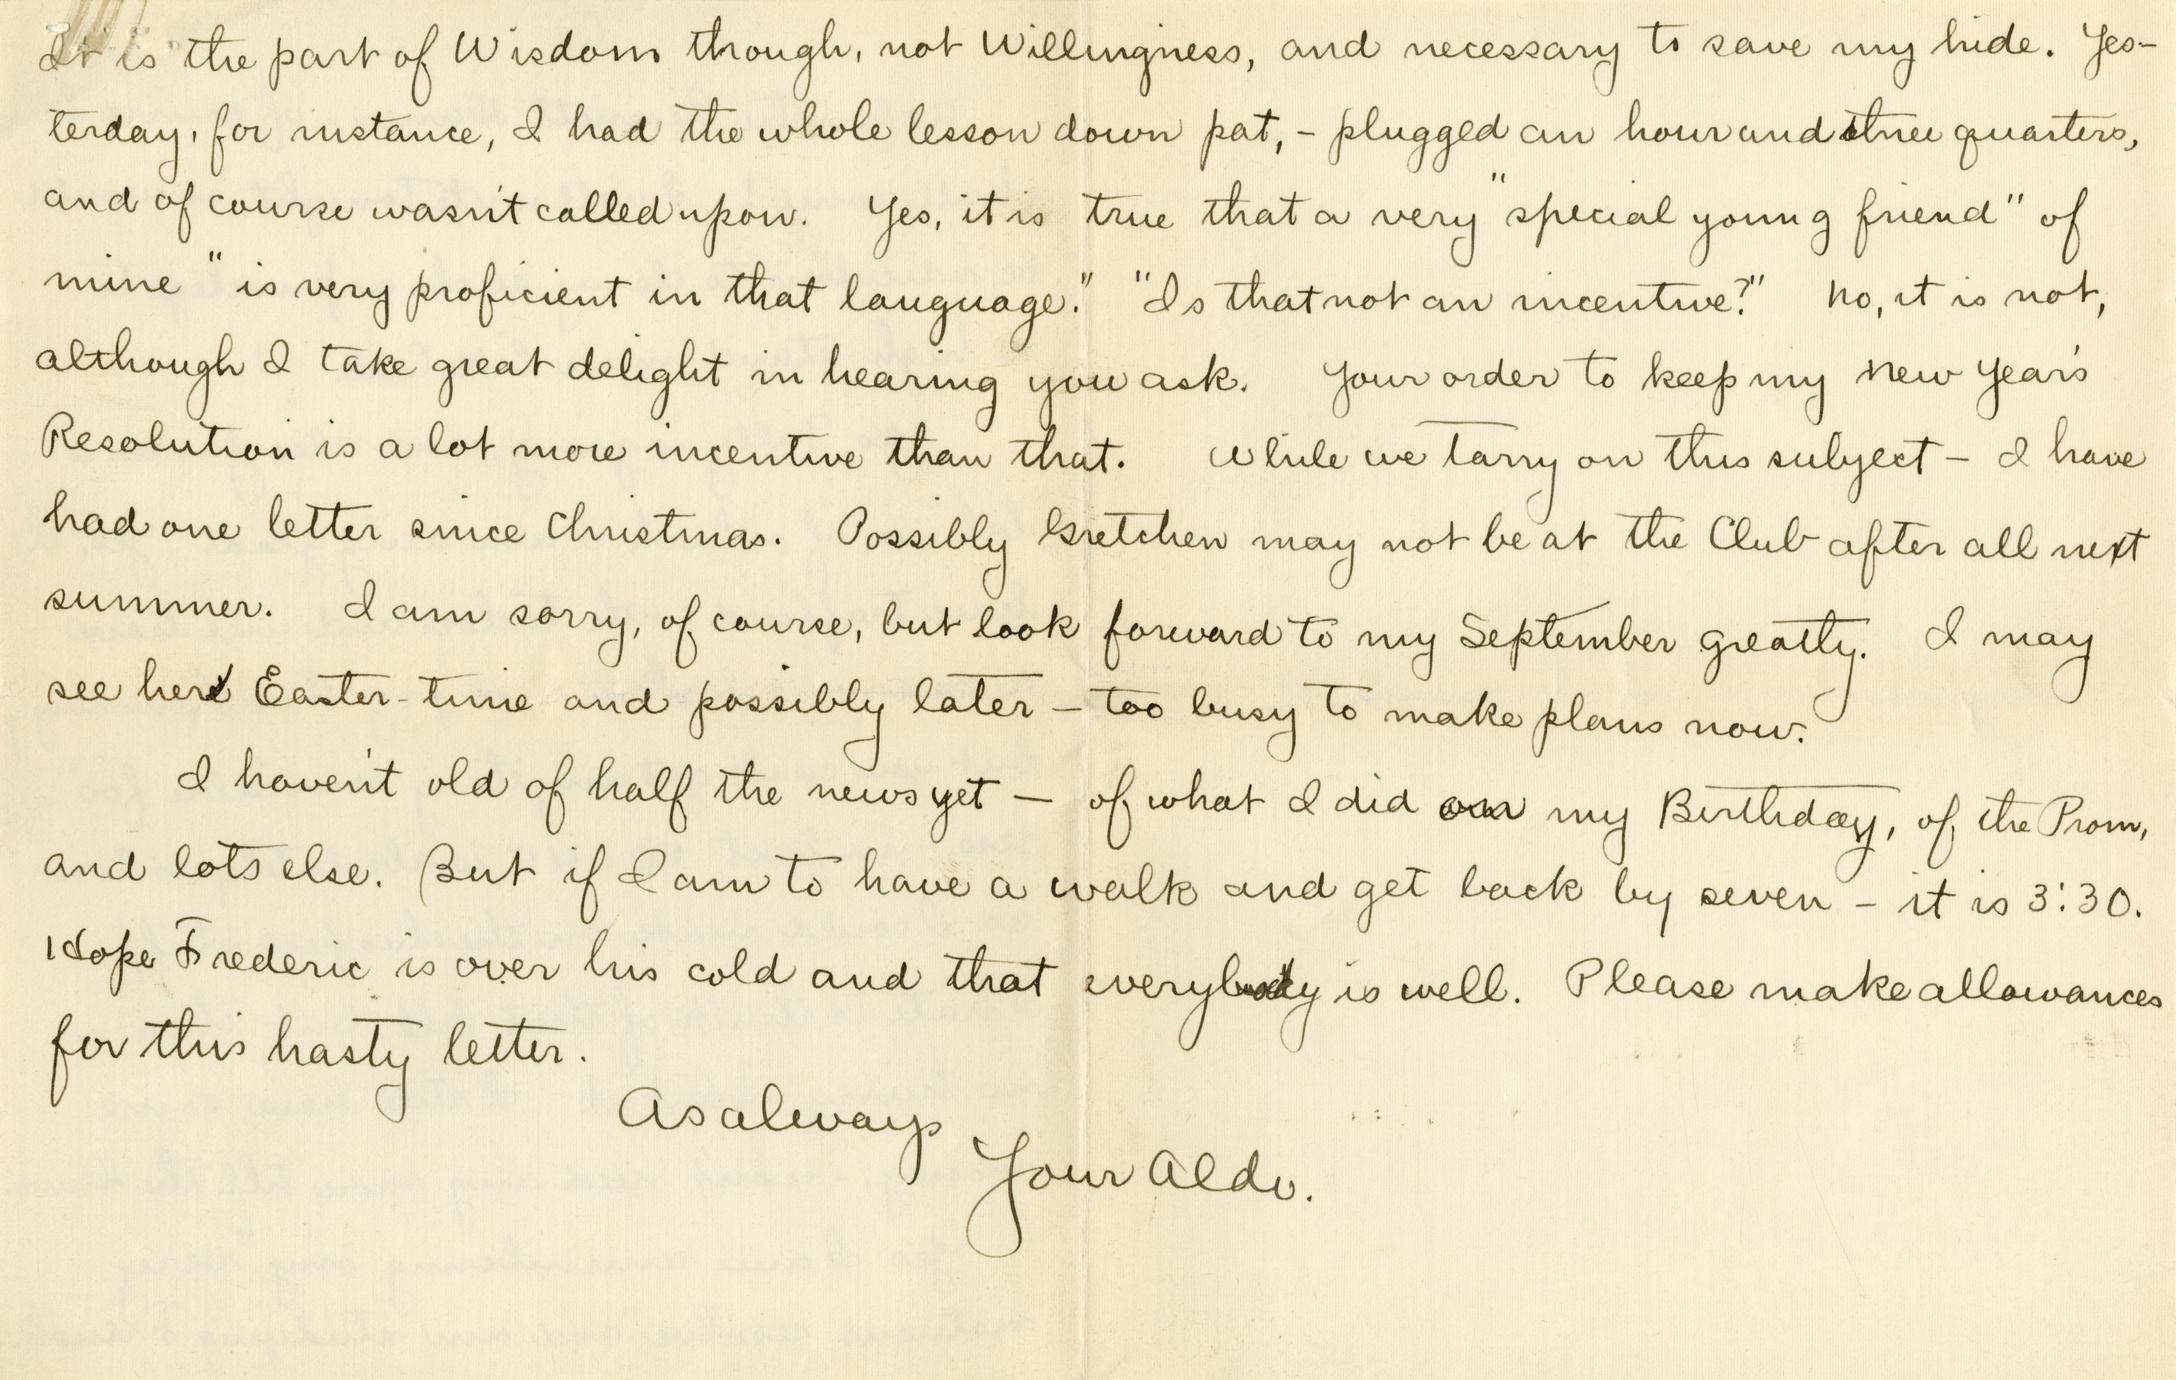 It is the part of Wisdom though, not Willingness, and necessary to save my hide. Yes-
terday, for instance, I had the whole lesson down pat, - plugged an hour and three quarters,
and of course wasn't called upon. Yes, it is true that a very "special young friend" of
mine "is very proficient in that language." "Is that not an incentive?" No, it is not,
although I take great delight in hearing you ask. Your order to keep my New Year's
Resolution is a lot more incentive than that. While we tarry on this subject - I have
had one letter since Christmas. Possibly Gretchen may not be at the Club after all next
summer. I am sorry, of course, but look forward to my September greatly. I may
see her Easter-time and possibly later - too busy to make plans now.
I haven't old of half the news yet - of what I did on my Birthday, of the Prom,
and lots else. But if I am to have a walk and get back by seven - it is 3:30.
Hope Frederic is over his cold and that everybody is well. Please make allowances
for this hasty letter.
As always
Your Aldo.